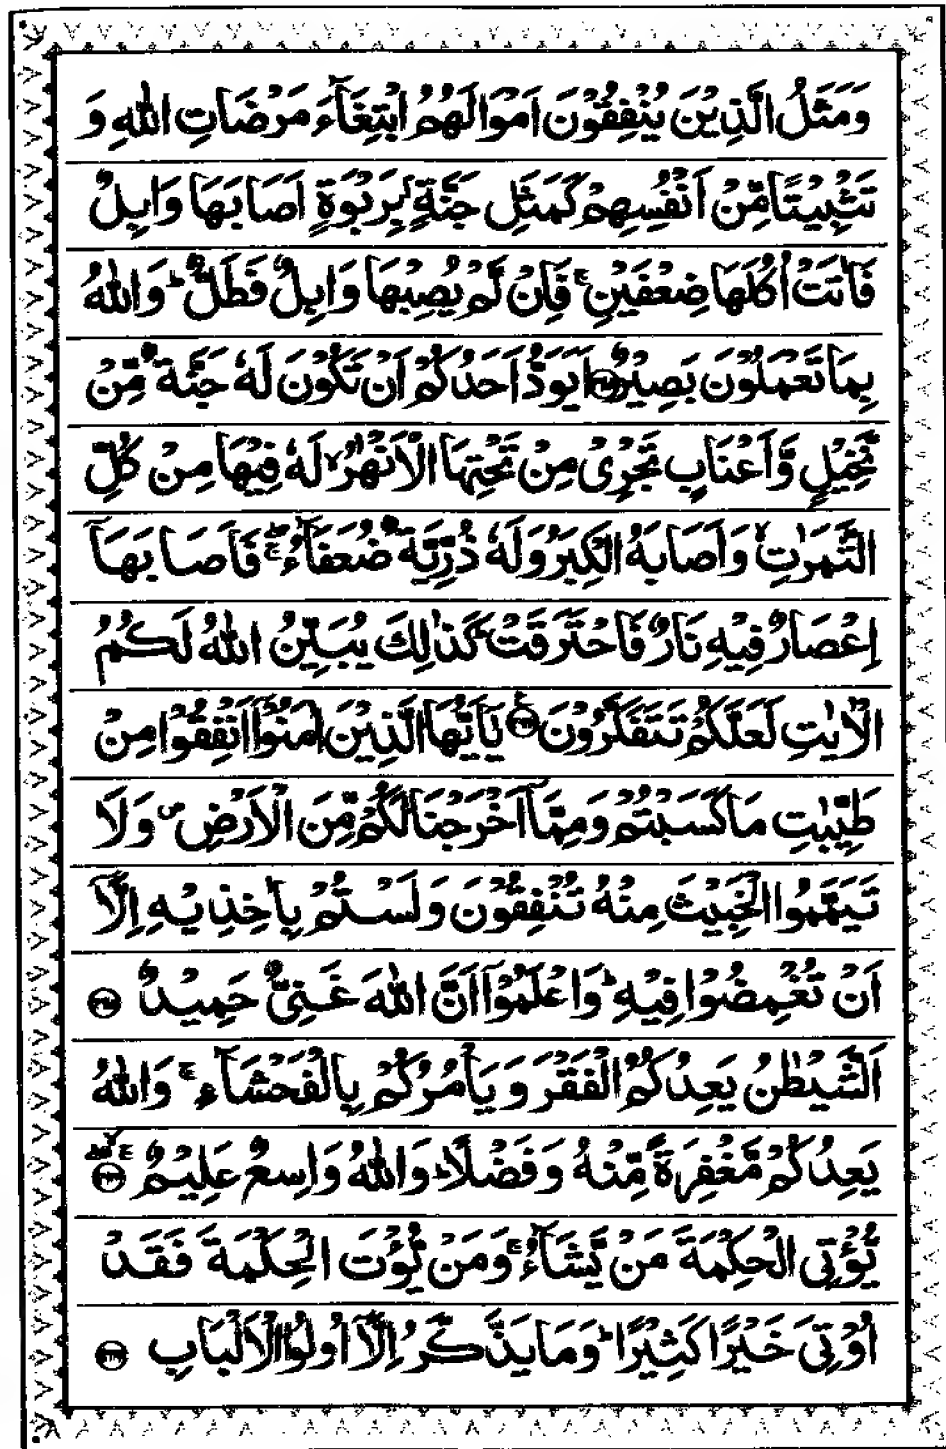 وَمَثَلُ الَّذِيْنَ يُنْفِقُوْنَ اَمْوَالَهُمُ ابْتِغَآءَ مَرْضَاتِ اللّٰهِ وَ
تَثْبِيْتًا مِّنْ اَنْفُسِهِمْ كَمَثَلِ جَنَّةٍۭ بِرَبْوَةٍ اَصَابَهَا وَابِلٌ
فَاٰتَتْ اُكُلَهَا ضِعْفَيْنِ ۚ فَاِنْ لَّمْ يُصِبْهَا وَابِلٌ فَطَلٌّ ؕ وَاللّٰهُ
بِمَا تَعْمَلُوْنَ بَصِيْرٌ ﴿۲۶۵﴾ اَيَوَدُّ اَحَدُكُمْ اَنْ تَكُوْنَ لَهٗ جَنَّةٌ مِّنْ
نَّخِيْلٍ وَّاَعْنَابٍ تَجْرِيْ مِنْ تَحْتِهَا الْاَنْهٰرُ ۙ لَهٗ فِيْهَا مِنْ كُلِّ
الثَّمَرٰتِ ۙ وَاَصَابَهُ الْكِبَرُ وَلَهٗ ذُرِّيَّةٌ ضُعَفَآءُ ۖۚ فَاَصَابَهَاۤ
اِعْصَارٌ فِيْهِ نَارٌ فَاحْتَرَقَتْ ؕ كَذٰلِكَ يُبَيِّنُ اللّٰهُ لَكُمُ
الْاٰيٰتِ لَعَلَّكُمْ تَتَفَكَّرُوْنَ ﴿۲۶۶﴾ يٰۤاَيُّهَا الَّذِيْنَ اٰمَنُوْۤا اَنْفِقُوْا مِنْ
طَيِّبٰتِ مَا كَسَبْتُمْ وَمِمَّاۤ اَخْرَجْنَا لَكُمْ مِّنَ الْاَرْضِ ۪ وَلَا
تَيَمَّمُوا الْخَبِيْثَ مِنْهُ تُنْفِقُوْنَ وَلَسْتُمْ بِاٰخِذِيْهِ اِلَّاۤ
اَنْ تُغْمِضُوْا فِيْهِ ؕ وَاعْلَمُوْۤا اَنَّ اللّٰهَ غَنِيٌّ حَمِيْدٌ ﴿۲۶۷﴾
اَلشَّيْطٰنُ يَعِدُكُمُ الْفَقْرَ وَيَاْمُرُكُمْ بِالْفَحْشَآءِ ۚ وَاللّٰهُ
يَعِدُكُمْ مَّغْفِرَةً مِّنْهُ وَفَضْلًا ؕ وَاللّٰهُ وَاسِعٌ عَلِيْمٌ ﴿۲۶۸﴾
يُّؤْتِي الْحِكْمَةَ مَنْ يَّشَآءُ ۚ وَمَنْ يُّؤْتَ الْحِكْمَةَ فَقَدْ
اُوْتِيَ خَيْرًا كَثِيْرًا ؕ وَمَا يَذَّكَّرُ اِلَّاۤ اُولُوا الْاَلْبَابِ ﴿۲۶۹﴾